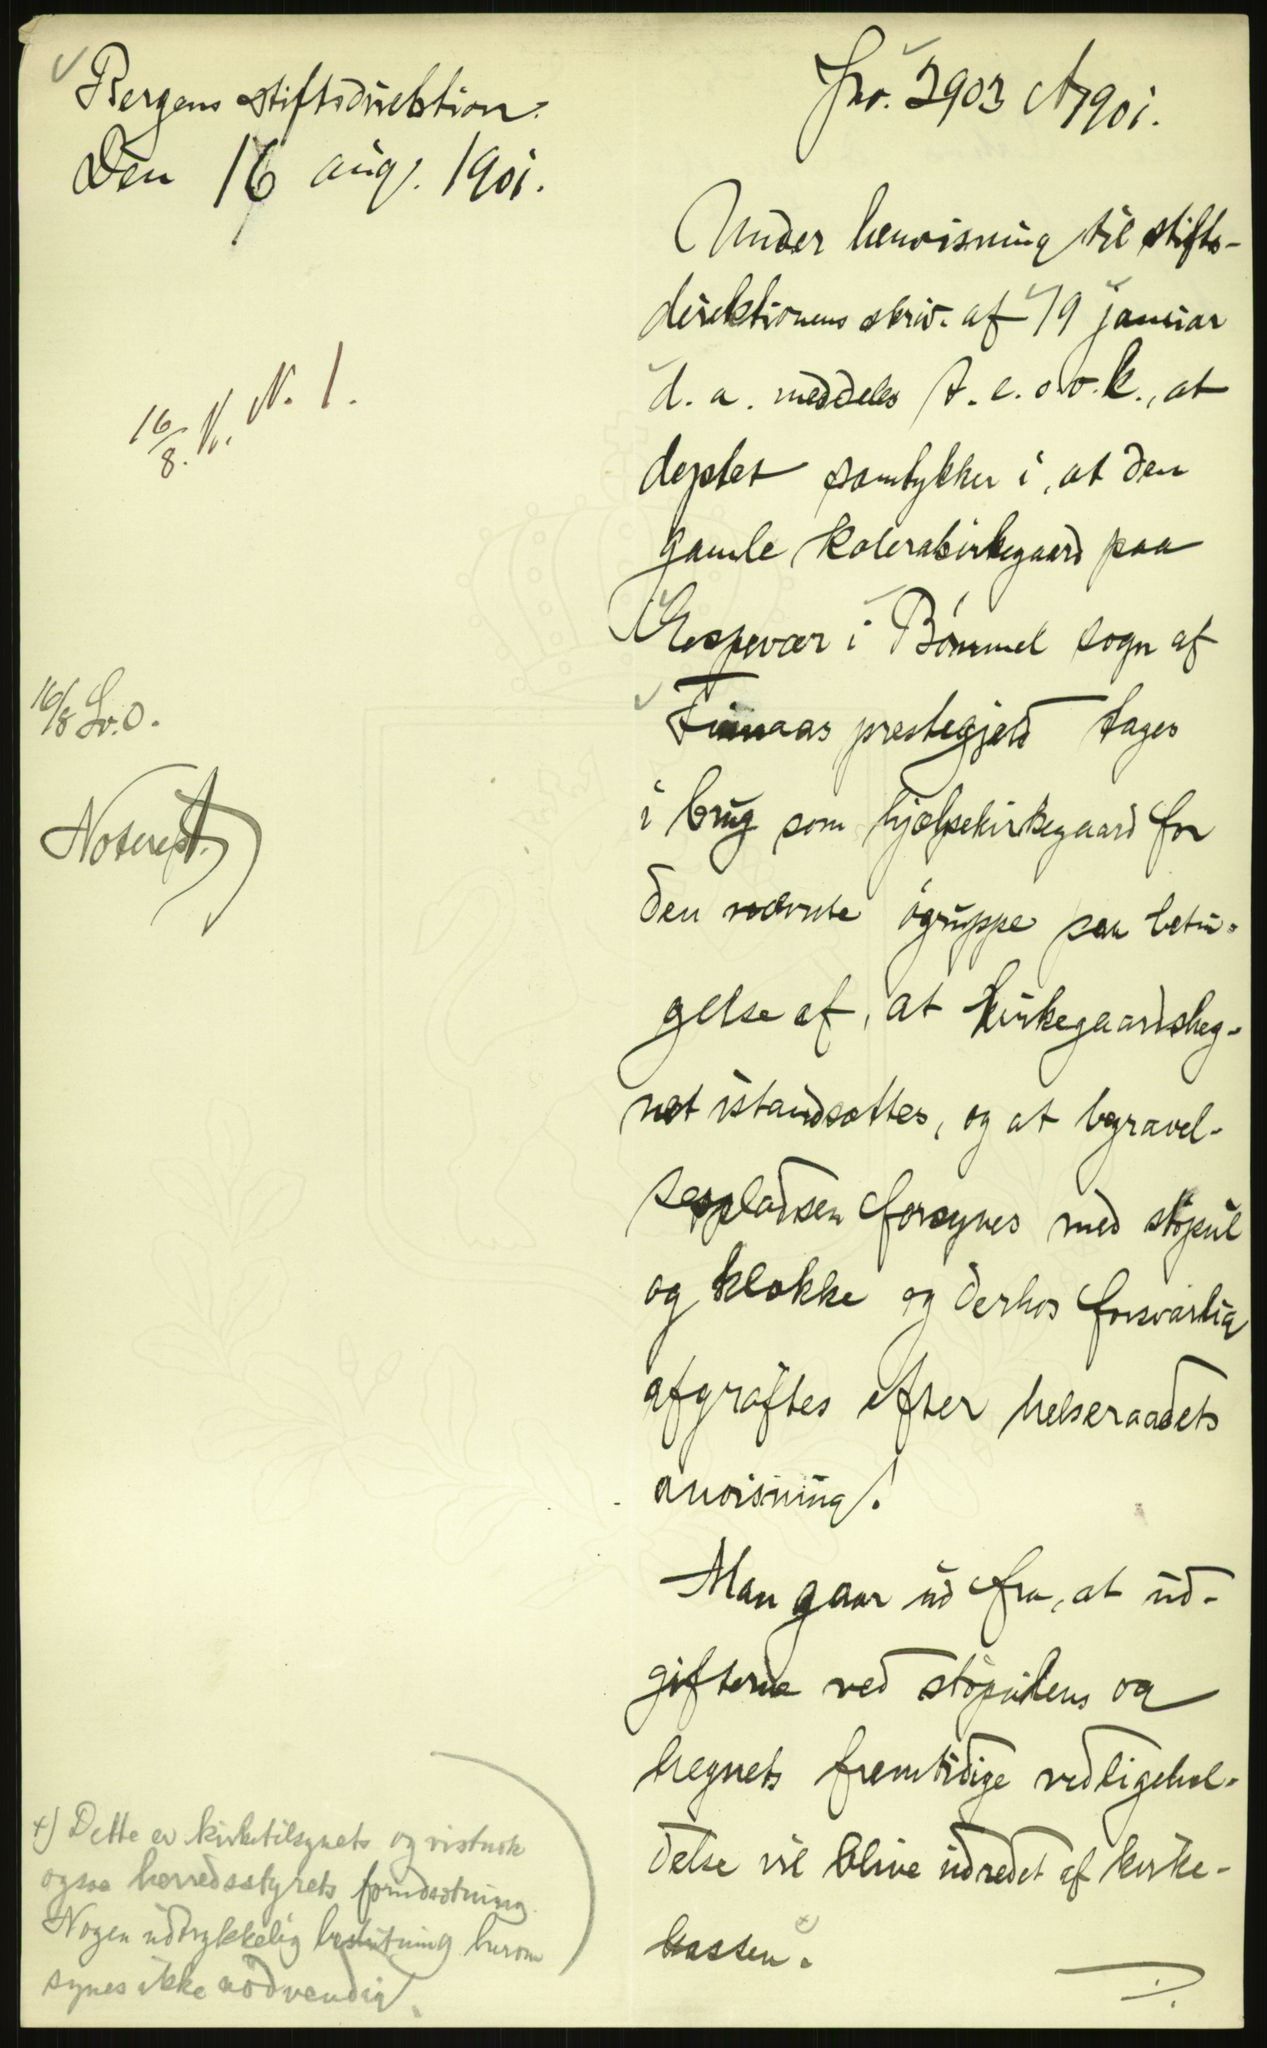 Bergens stiftsdirektion.
Den 16 aug. 1901.
Jno. 2903 A 1901.
16/8. K. N. 1.
16/8 Lv. O.
Noteret
Under henvisning til stifts-
direktionens skriv. af 19 januar
d. a. meddeles t. e. o. v. k., at
deptet samtykker i, at den
gamle kolerakirkegaard paa
Espevær i Bømmel sogn af
Finnaas prestegjeld tages
i brug som hjælpekirkegaard for
den nævnte øgruppe paa betin-
gelse af, at kirkegaardsheg-
net istandsættes, og at begravel-
sespladsen forsynes med støpul
og klokke og derhos forsvarlig
afgrøftes efter helseraadets
anvisning.
Man gaar ud fra, at ud-
gifterne ved støpulens og
hegnets fremtidige vedligehol-
delse vil blive udredet af kirke-
kassen. x)
D.
x) Dette er kirketilsynets og vistnok
ogsaa herredsstyrets forudsætning.
Nogen udtrykkelig beslutning herom
synes ikke nødvendig.